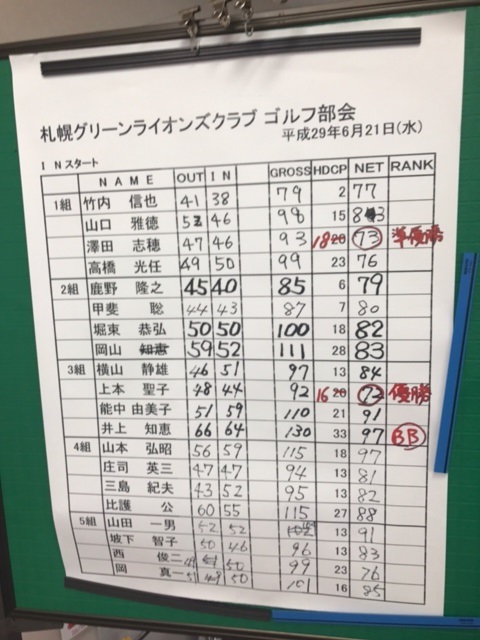 札幌グリーンライオンズクラブ ゴルフ部会
平成29年6月21日(水)
INスタート
NAME OUT IN GROSS HDCP NET RANK
1組 竹内 信也 41 38 79 2 77
山口 雅徳 52 46 98 15 83
澤田 志穂 47 46 93 18 20 73 準優勝
高橋 光任 49 50 99 23 76
2組 鹿野 隆之 45 40 85 6 79
甲斐 聡 44 43 87 7 80
堀東 恭弘 50 50 100 18 82
岡山 知恵 59 52 111 28 83
3組 横山 静雄 46 51 97 13 84
上本 聖子 48 44 92 16 20 72 優勝
能中 由美子 51 59 110 21 91
井上 知恵 66 64 130 33 97 BB
4組 山本 弘昭 56 59 115 18 97
庄司 英三 47 47 94 13 81
三島 紀夫 43 52 95 13 82
比護 公 60 55 115 27 88
5組 山田 一男 52 52 13 91
坂下 智子 50 46 96 13 83
西 俊二 49 50 99 23 76
岡 真一 51 49 50 101 16 85